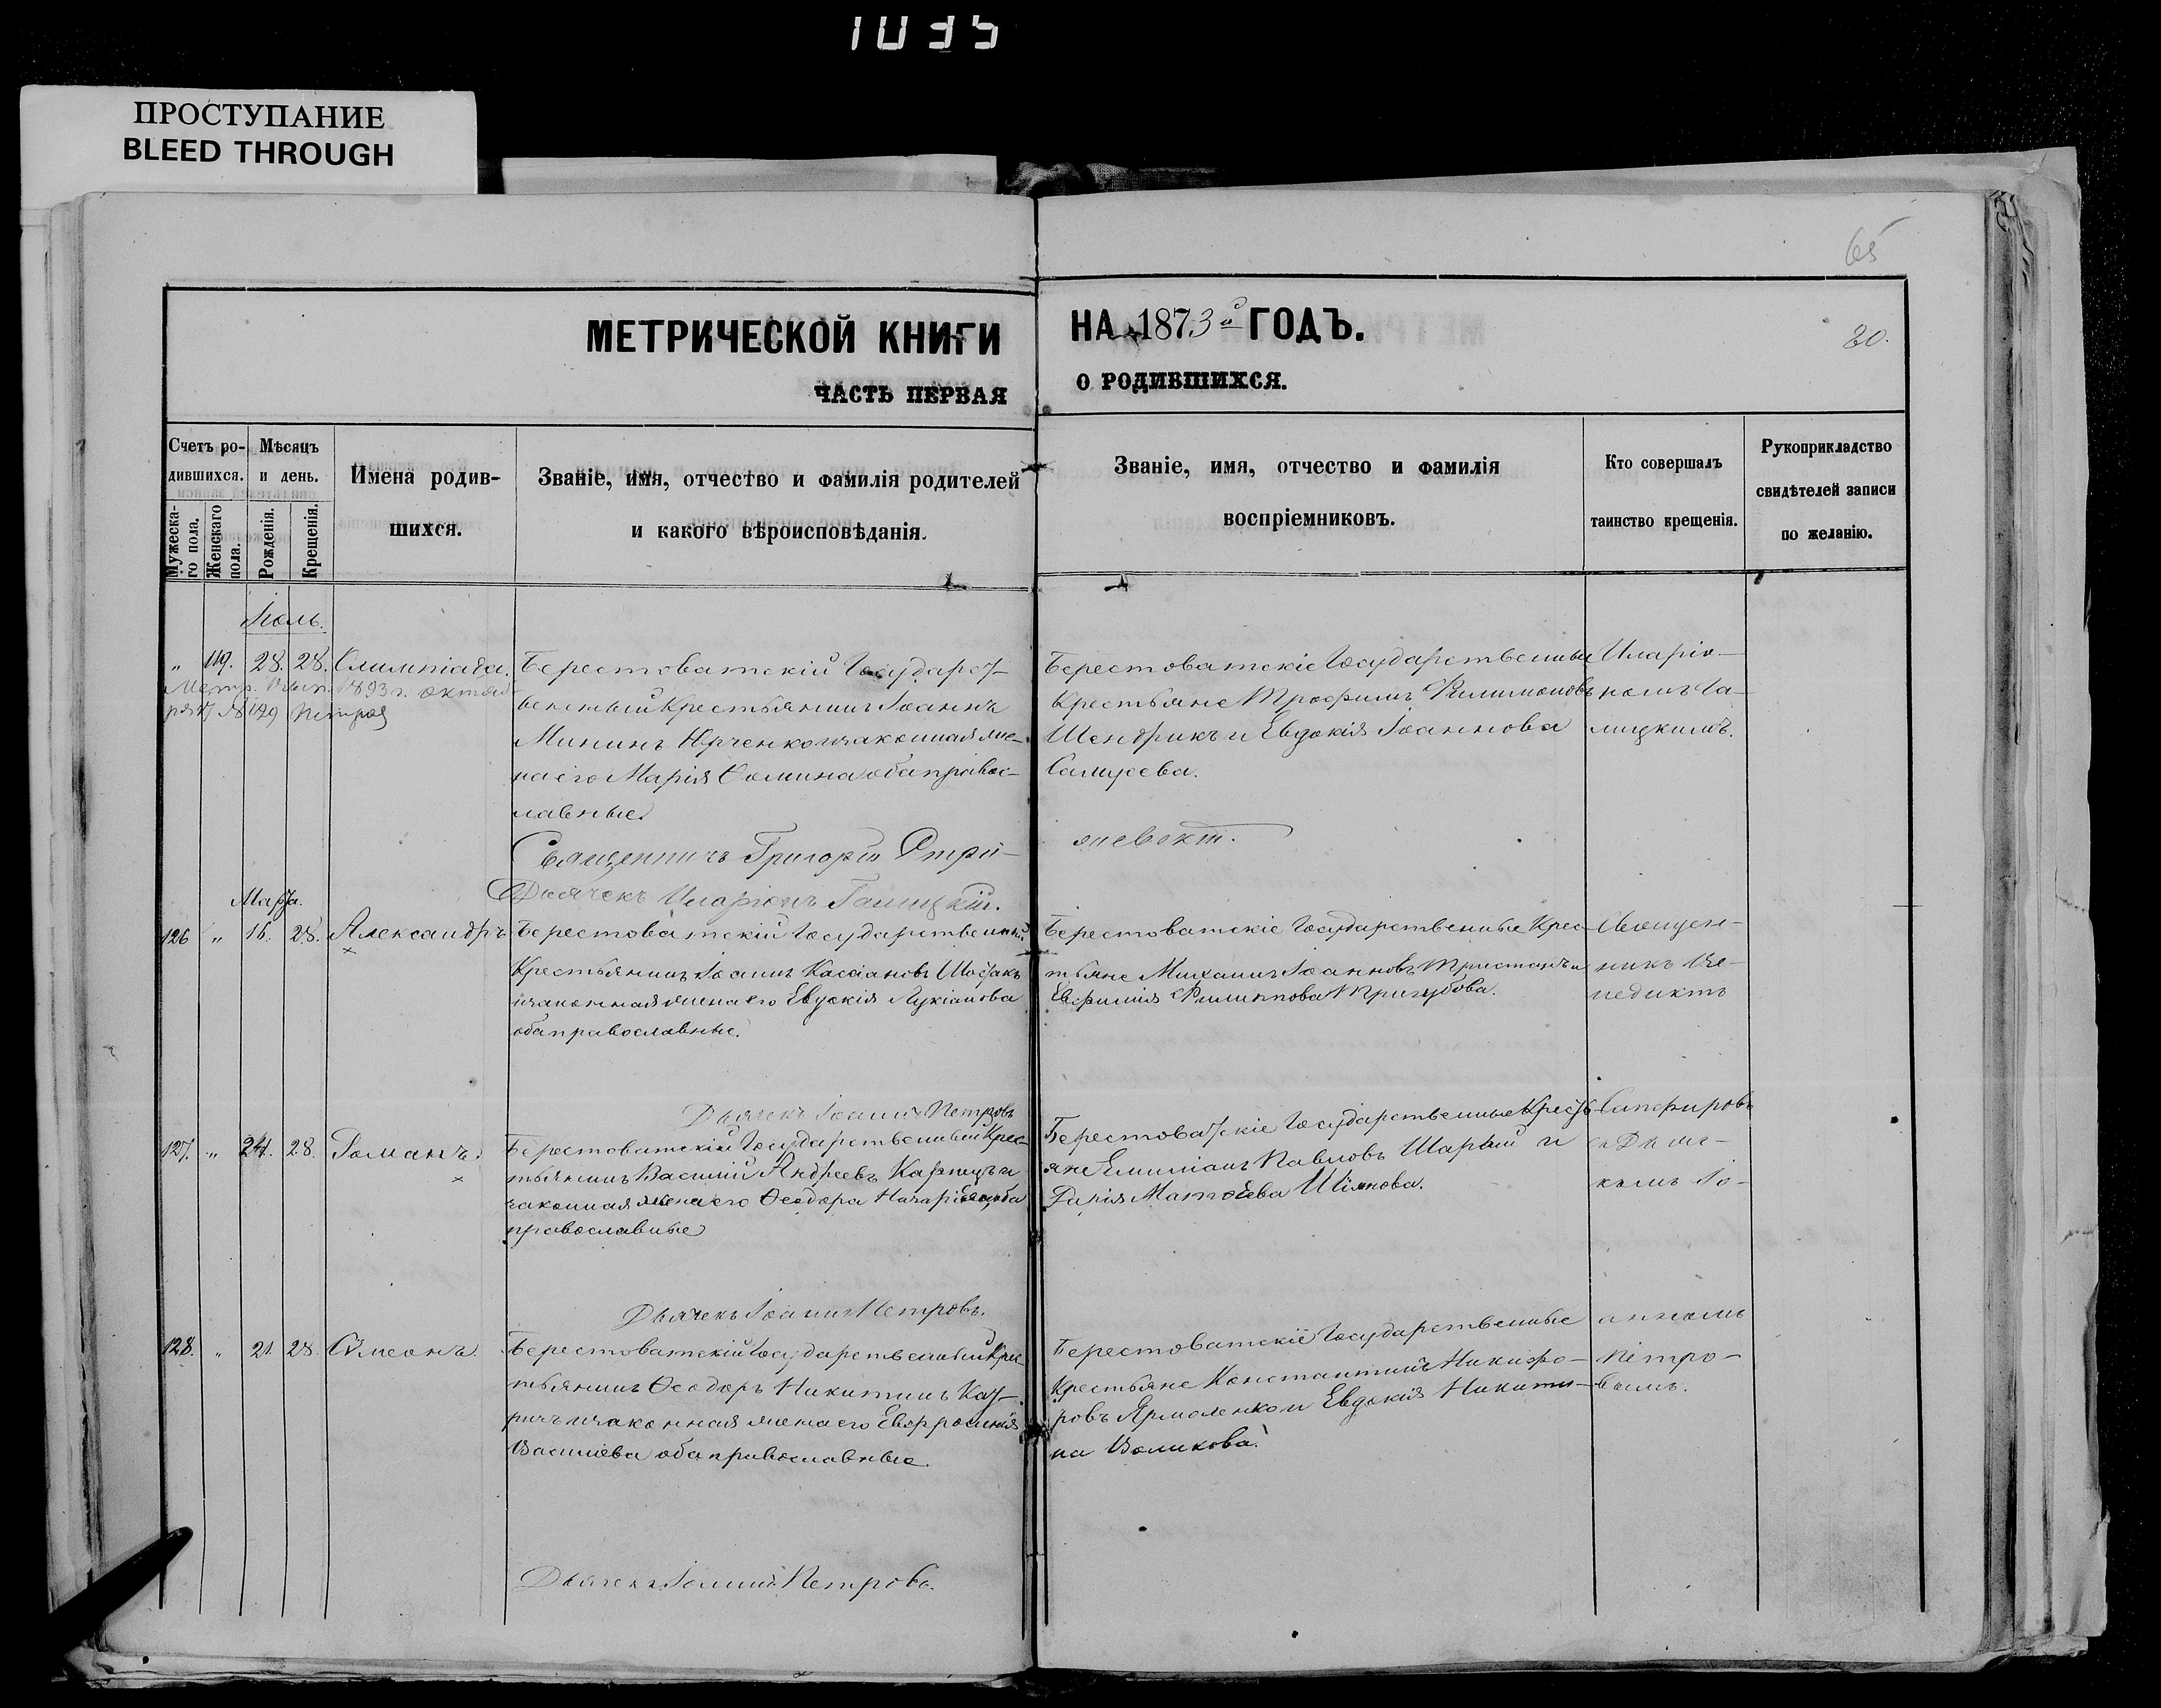 1035
ПРОСТУПАНИЕ
BLEED THROUGH
65
МЕТРИЧЕСКОЙ КНИГИ НА 1873й ГОДЪ.
20.
ЧАСТЬ ПЕРВАЯ О РОДИВШИХСЯ.
Счетъ ро-
дившихся.
Мужеска-
го пола.
Женскаго
пола.
Мѣсяцъ
и день.
Рожденія.
Крещенія.
Имена родив-
шихся.
Званіе, имя, отчество и фамилія родителей
и какого вѣроисповѣданія.
Званіе, имя, отчество и фамилія
воспріемниковъ.
Кто совершалъ
таинство крещенія.
Рукоприкладство
свидѣтелей записи
по желанію.
Іюль.
„ 119. 28. 28. Олимпіада.
Метр. вып. 1893 г. октяб
ря 17 № 129 Петров
Берестоватскій Государст-
венный Крестьянинъ Іоаннъ
Мининъ Юрченко и законная же-
на его Марія Ѳомина оба правос-
лавные.
Берестоватскіе Государственные
Крестьяне Трофимъ Филимоновъ
Шендрикъ и Евдокія Іоаннова
Саподева.
Иларіо-
номъ Га-
лицкимъ.
Священникъ Григорій
Дьячекъ Иларіонъ Галицкій.
Марта.
126 „ 16. 28. Александръ
Берестоватскій Государственный
Крестьянинъ Іоаннъ Кассіановъ
и законная жена его Евдокія Лукіанова
оба православные.
Берестоватскіе Государственные Крес-
тьяне Михаилъ Іоанновъ и
Евфимія Филиппова Тригубова.
Священ-
никъ Ве-
недиктъ
Дьячекъ Іоаннъ Петровъ
127. „ 24. 28. Романъ.
Берестоватскій Государственный Крес-
тьянинъ Василій Андреевъ и
законная жена его Ѳеодора Назаріева, оба
православные
Берестоватскіе Государственные Кресть
яне Емиліанъ Павловъ Шарый и
Дарія Матѳеева
Сапфировъ
съ Дьяч-
комъ Іо-
Дьячекъ Іоаннъ Петровъ.
128. „ 21. 28. Симеонъ.
Берестоватскій Государственный Крес-
тьянинъ Ѳеодоръ Никитинъ Кау-
ричъ и законная жена его Евфросинія
Василіева оба православные.
Берестоватскіе Государственные
Крестьяне Константинъ Никифо-
ровъ Ярмоленко и Евдокія Никити-
на Воликова.
анномъ
Петро-
вымъ.
Дьячекъ Іоаннъ Петровъ.